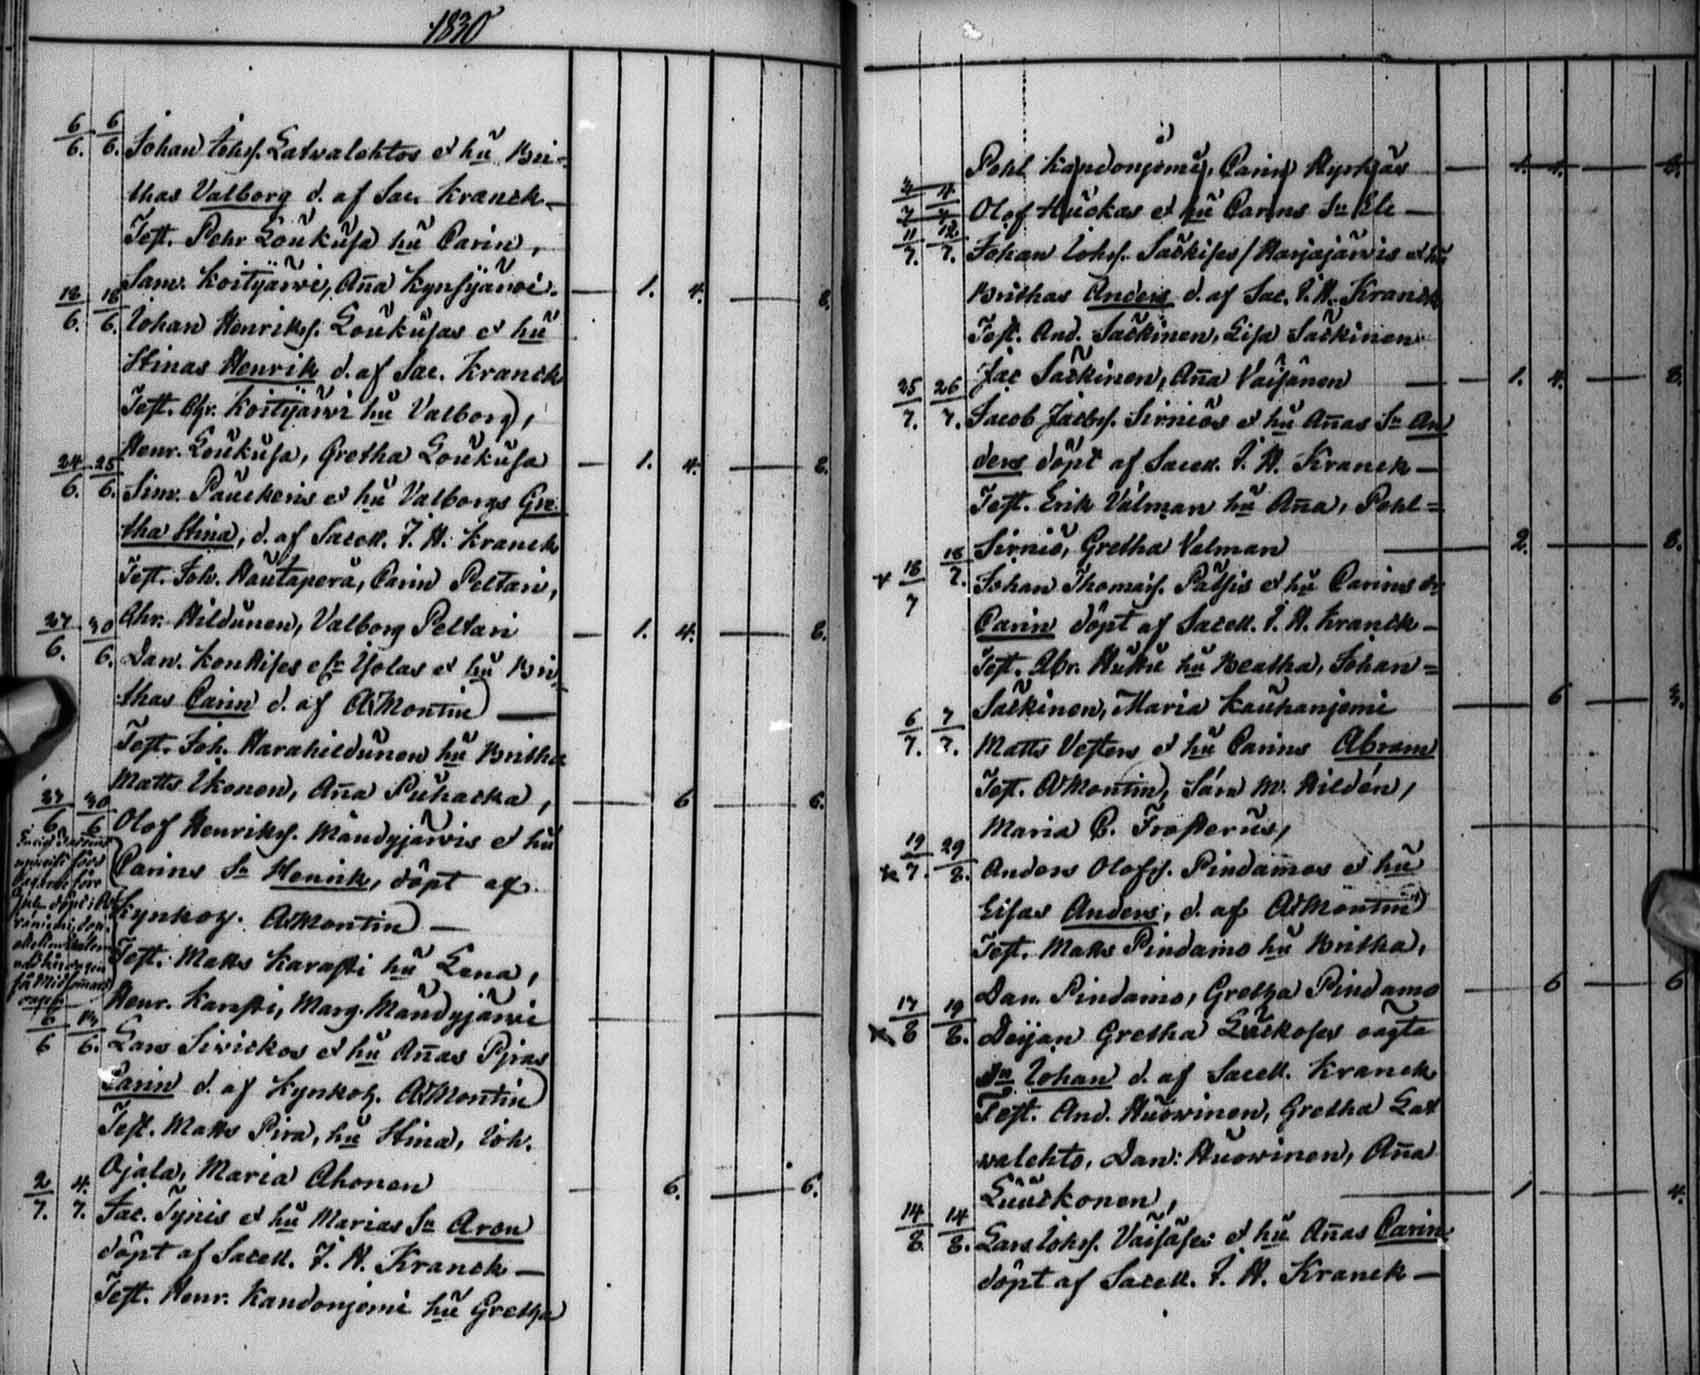 1830
6/6. 6/6. Johan Johs. Latvalehtos et hu Bri=
thas Valborg d. af Sac. Kranck —
Test. Pehr Loukusa hu Carin,
Sam. Koityärvi, Aña Kynsyärvi. — 1. 4. — 8.
18/6. 18/6. Johan Henriks. Loukusas et hu
Stinas Henrik d. af Sac. Kranck
Test. Chr. Koityärvi hu Valborg,
Henr. Loukusa, Gretha Loukusa — 1. 4. — 8.
24/6. 25/6. Sim. Pauckeris et hu Valborgs Gre=
tha Stina, d. af Sacell. J. H. Kranck
Test. Joh. Rautapera, Carin Peltari,
Chr. Hildunen, Valborg Peltari — 1. 4. — 8.
27/6. 30/6. Dan. et hu Bri=
thas Carin d. af A Montin —
Test. Joh. Harahildunen hu Britha
Matts Ikonen, Aña Puhacka, — 6 — 6.
27/6 30/6 Olof Henriks. Mändyjärvis et hu
Carins Sn Henrik, döpt af
Kynkoz. A Montin —
Test. Matts Karasti hu Lena,
Henr. Karsti, Marg. Mändyjärvi
6/6 13/6. Lars Sivickos et hu Añas Piras
Carin d. af Kynkoz. A Montin
Test. Matts Pira, hu Stina, Joh.
Ojala, Maria Ahonen — 6. — 6.
2/7. 4/7. Jac. Tynis et hu Marias Sn Aron
döpt af Sacell. J. H. Kranck —
Test. Henr. Kandonjemi hu Gretha
Pehl Kandonjemi, Carin Hyrkäs — 1. 4. — 8.
3/7 4/7 Olof Huckas et hu Carins Sn Ele —
11/7. 12/7. Johan Johs. Säckises / Harjajärvis et hu
Brithas Anders d. af Sac. J. H. Kranck
Test. And. Säckinen, Lisa Säckinen
Jac Säckinen, Aña Vaisänen — 1. 4. — 8.
25/7. 26/7. Jacob Jacobs. Sirniös et hu Añas Sn An
ders döpt af Sacell. J. H. Kranck —
Test. Erik Välman hu Aña, Pehl=
Sirniö, Gretha Velman — 2. — 8.
18/7 18/7. Johan Thomæs. Pätsis et hu Carins dr
Carin döpt af Sacell. J. H. Kranck —
Test. Abr. Huttu hu Beatha, Johan=
Säckinen, Maria Kauhanjemi — 6 — 3.
6/7. 7/7. Matts Vesters et hu Carins Abram
Test. A Montin, Sara M. Hildén,
Maria C. Frosterus,
19/7. 29/8. Anders Olofs. Pindamos et hu
Lisas Anders, d. af A Montin
Test. Matts Pindamo hu Britha,
Dan. Pindamo, Gretha Pindamo — 6 — 6
17/8 19/8. Deijan Gretha Luckoses oägte
Sn Johan d. af Sacell. Kranck
Test. And. Huovinen, Gretha Lat
valehto, Dan: Huovinen, Aña
Luuckonen, — 1 — 4.
14/8. 14/8. Lars Johs. Vaisäses et hu Añas Carin
döpt af Sacell. J. H. Kranck —